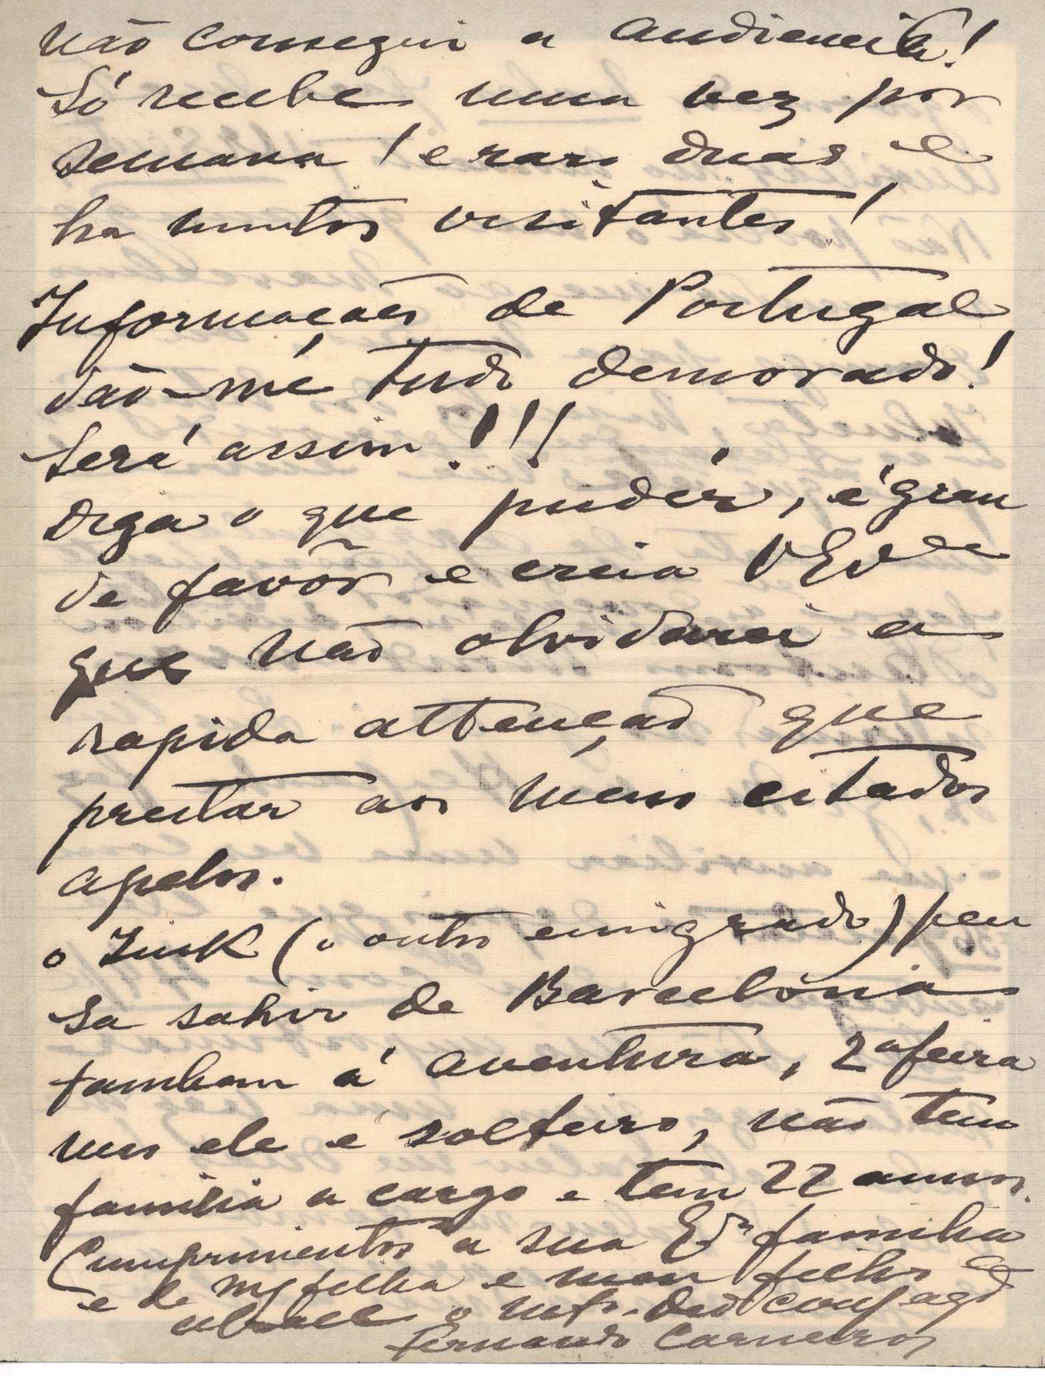 não consegui a audiencia!
Só recebe uma vez por
semana! e raro duas e
ha muitos visitantes!
Informações de Portugal
dão-me tudo demorado!
Será assim!!!
Diga o que pudér, é gran
de favôr e creia VEx
que não olvidarei a
rapida attenção que
prestar aos meus citados
apelos.
o Zink (o outro emigrado) pen
sa sahir de Barcelona
tambem á aventura, 2ª feira
mas ele é solteiro, não tem
familia a cargo e tem 22 annos.
Cumprimentos a sua Exª familia
e de mª filha e meu filho
o
Fernando Carneiro